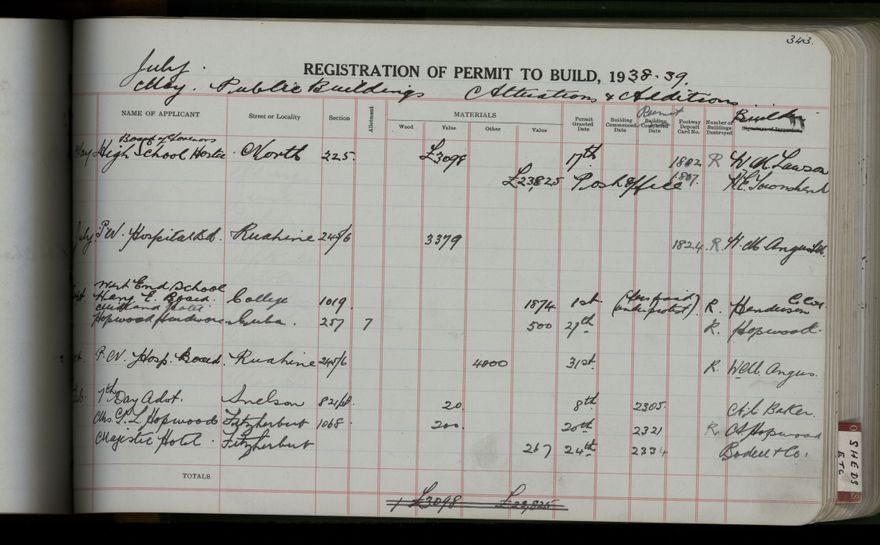 343.
July.
REGISTRATION OF PERMIT TO BUILD, 1938-39.
May. Public Buildings Alterations & Additions
NAME OF APPLICANT Street or Locality Section Allotment MATERIALS Wood Value Other Value Permit Granted Date Building Commenced Date Building Completed Date Permit Footway Deposit Card No. Number of Buildings Destroyed Builder
Board of Governors
May High School Hostel North 225. £3098 17th 1802 R W H Lawson
£23,825 Post Office 1807. H.E. Townshend
July P.N. Hospital Bd. Ruahine 245/6 3379 1824 R W M Angus Ltd.
West End School
Wang. E. Board College 1019 1874 1st (fees paid under protest) R. Henderson
Hopwood Hardware Cuba. 257 7 500 27th R. Hopwood.
P.N. Hosp. Board. Ruahine 245/6 4000 31st R. W.M. Angus.
7th Day Advt. Snelson 821 20. 8th 2305. Baker.
Mrs. G. L. Hopwood Fitzherbert 1068. 200. 20th 2321 R. Hopwood
Majestic Hotel. Fitzherbert 267 24th 2334 Bodell & Co.
TOTALS
£3098 £23,825
SHEDS ETC